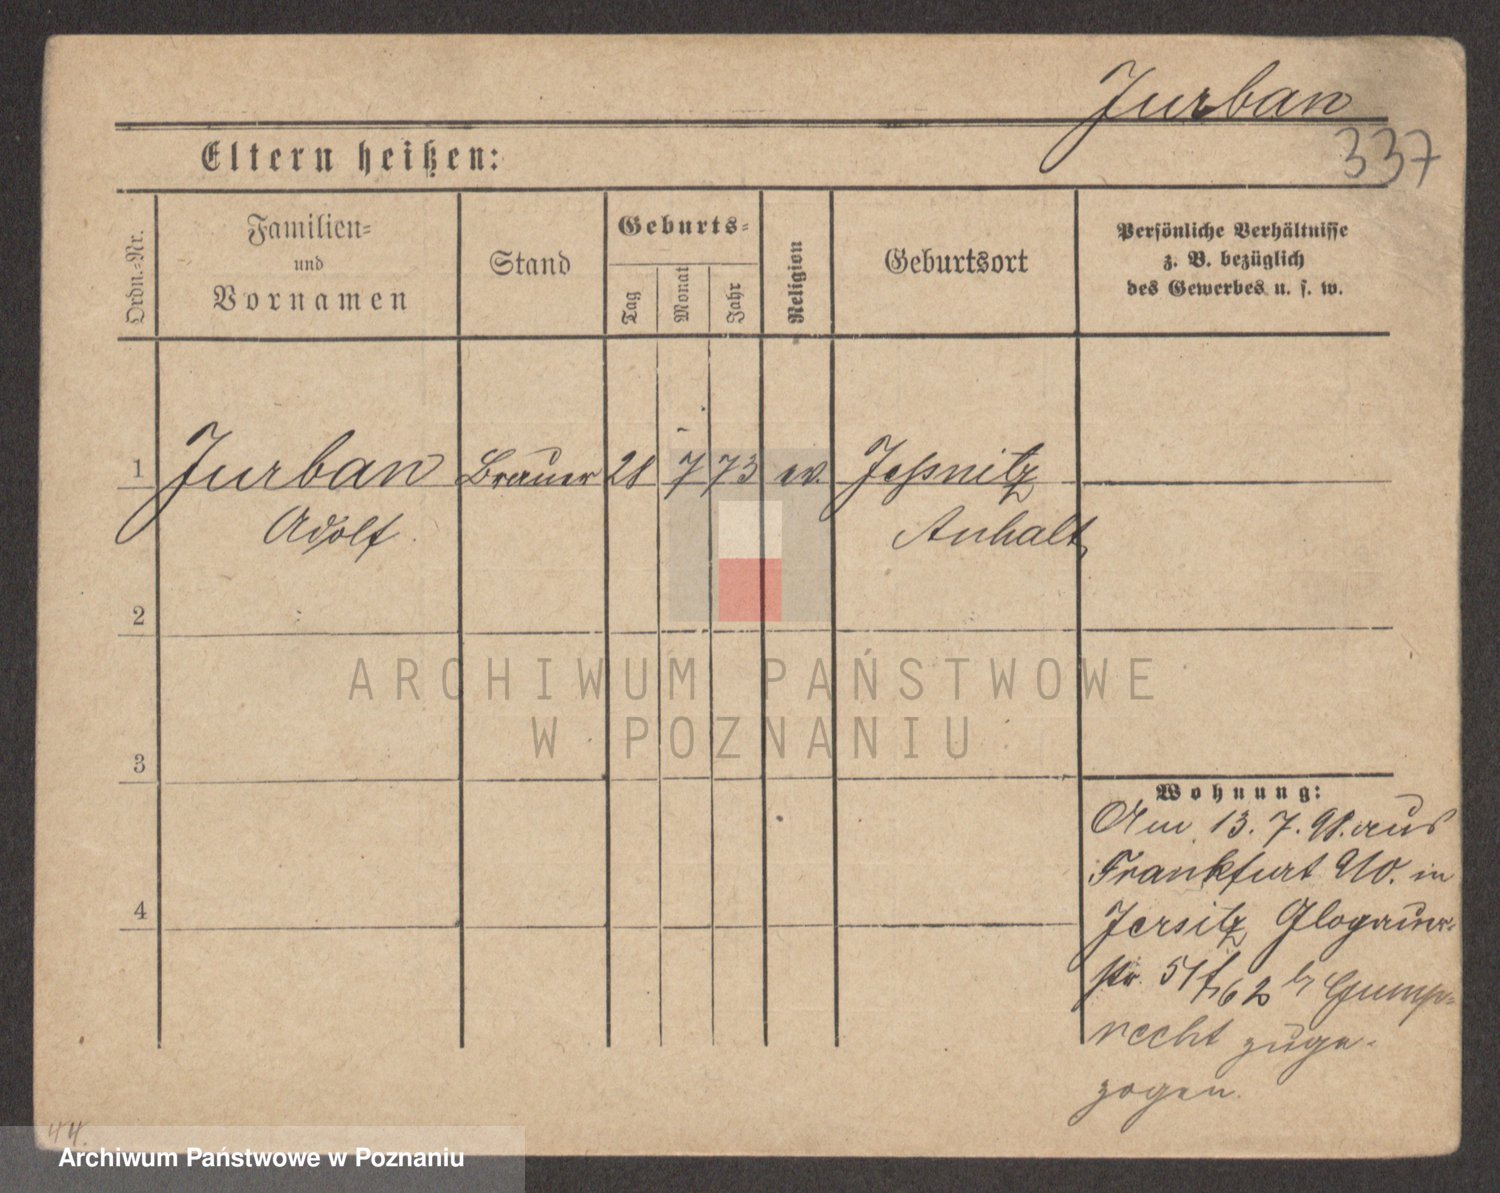 Jurban
337
Eltern heißen:
Ordn.-Nr.
Familien-
und
Vornamen
Stand
Geburts-
Tag
Monat
Jahr
Religion
Geburtsort
Persönliche Verhältnisse
z. B. bezüglich
des Gewerbes u. s. w.
1 Jurban Brauer 28 7 73 ev. Jeßnitz
Adolf Anhalt
2
ARCHIWUM PAŃSTWOWE
W POZNANIU
3
4
Wohnung:
Am 13. 7. 98. aus
Frankfurt a/O. in
Jersitz Glogauer-
str. 51/62 b Gump-
recht zuge-
zogen.
44.
Archiwum Państwowe w Poznaniu